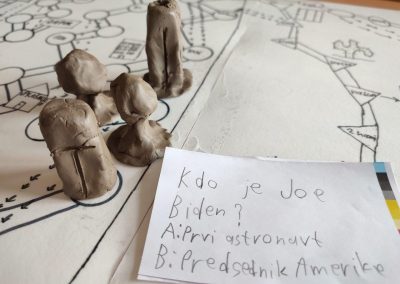 Kdo je Joe
Biden?
A: Prvi astronavt
B: Predsednik Amerike